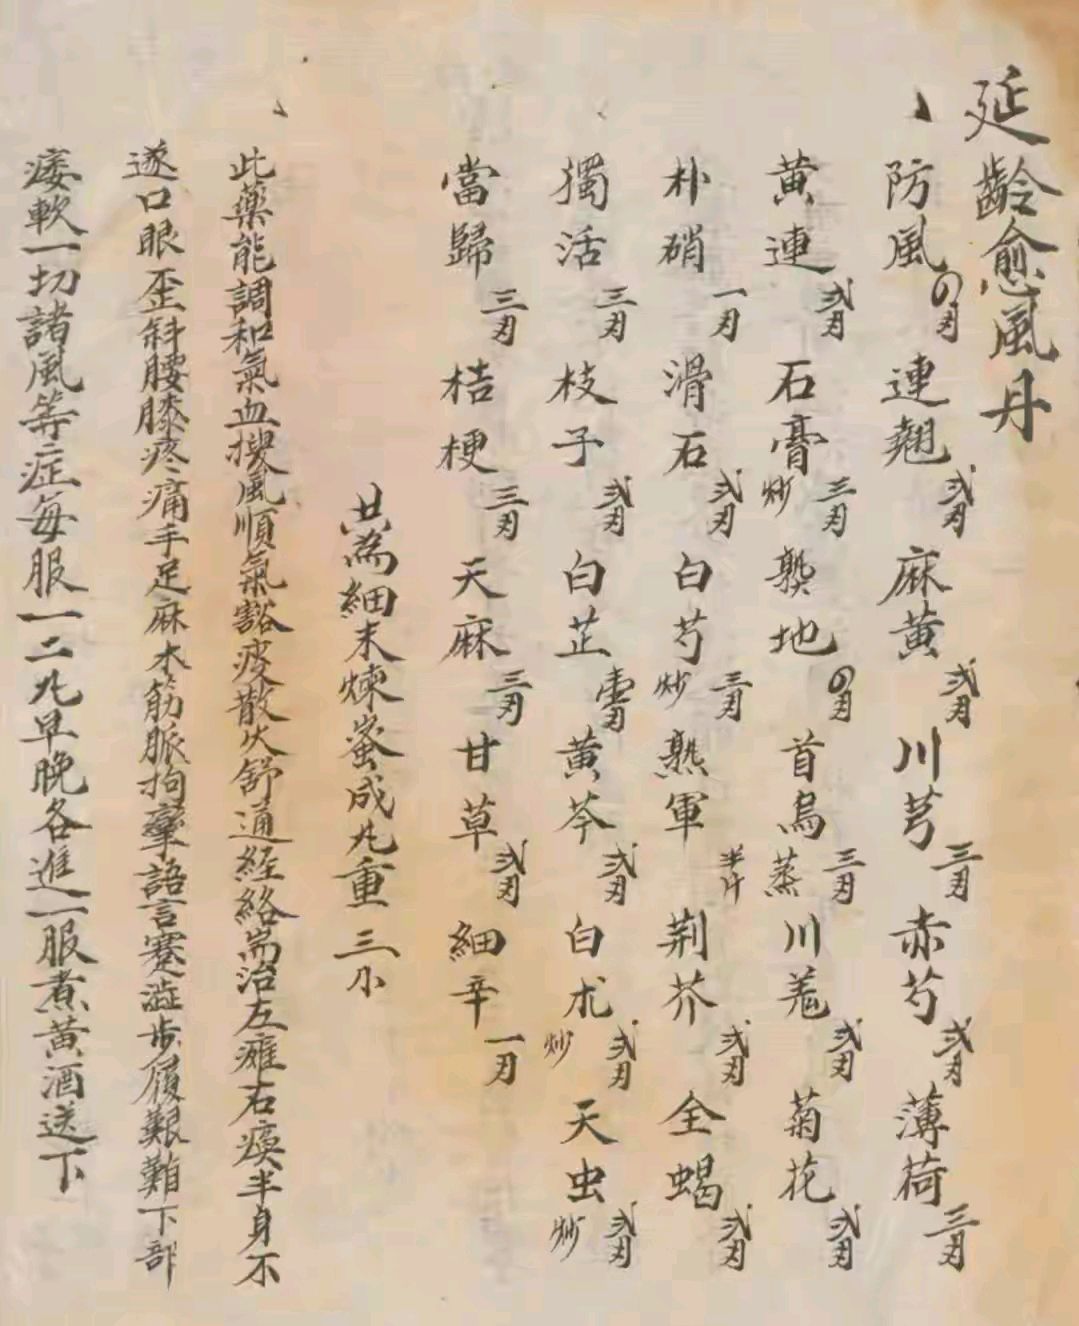 延齡愈風丹
防風 〇刄 連翹 弍刄 麻黄 弍刄 川芎 三刄 赤芍 弍刄 薄荷 三刄
黄連 弍刄 石膏 炒 三刄 熟地 〇刄 首烏 蒸 三刄 川羗 弍刄 菊花 弍刄
朴硝 一刄 滑石 弍刄 白芍 炒 三刄 熟軍 半斤 荆芥 弍刄 全蝎 弍刄
獨活 三刄 枝子 弍刄 白芷 黄芩 弍刄 白朮 炒 弍刄 天虫 炒 弍刄
當歸 三刄 桔梗 三刄 天麻 三刄 甘草 弍刄 細辛 一刄
共為細末煉蜜成丸重三小
此藥能調和氣血搜風順氣豁痰散火舒通経絡耑治左癱右瘓半身不
遂口眼歪斜腰膝疼痛手足麻木筋脈拘攣語言蹇澁步履艱難下部
痿軟一切諸風等症每服一二丸早晚各進一服煮黄酒送下